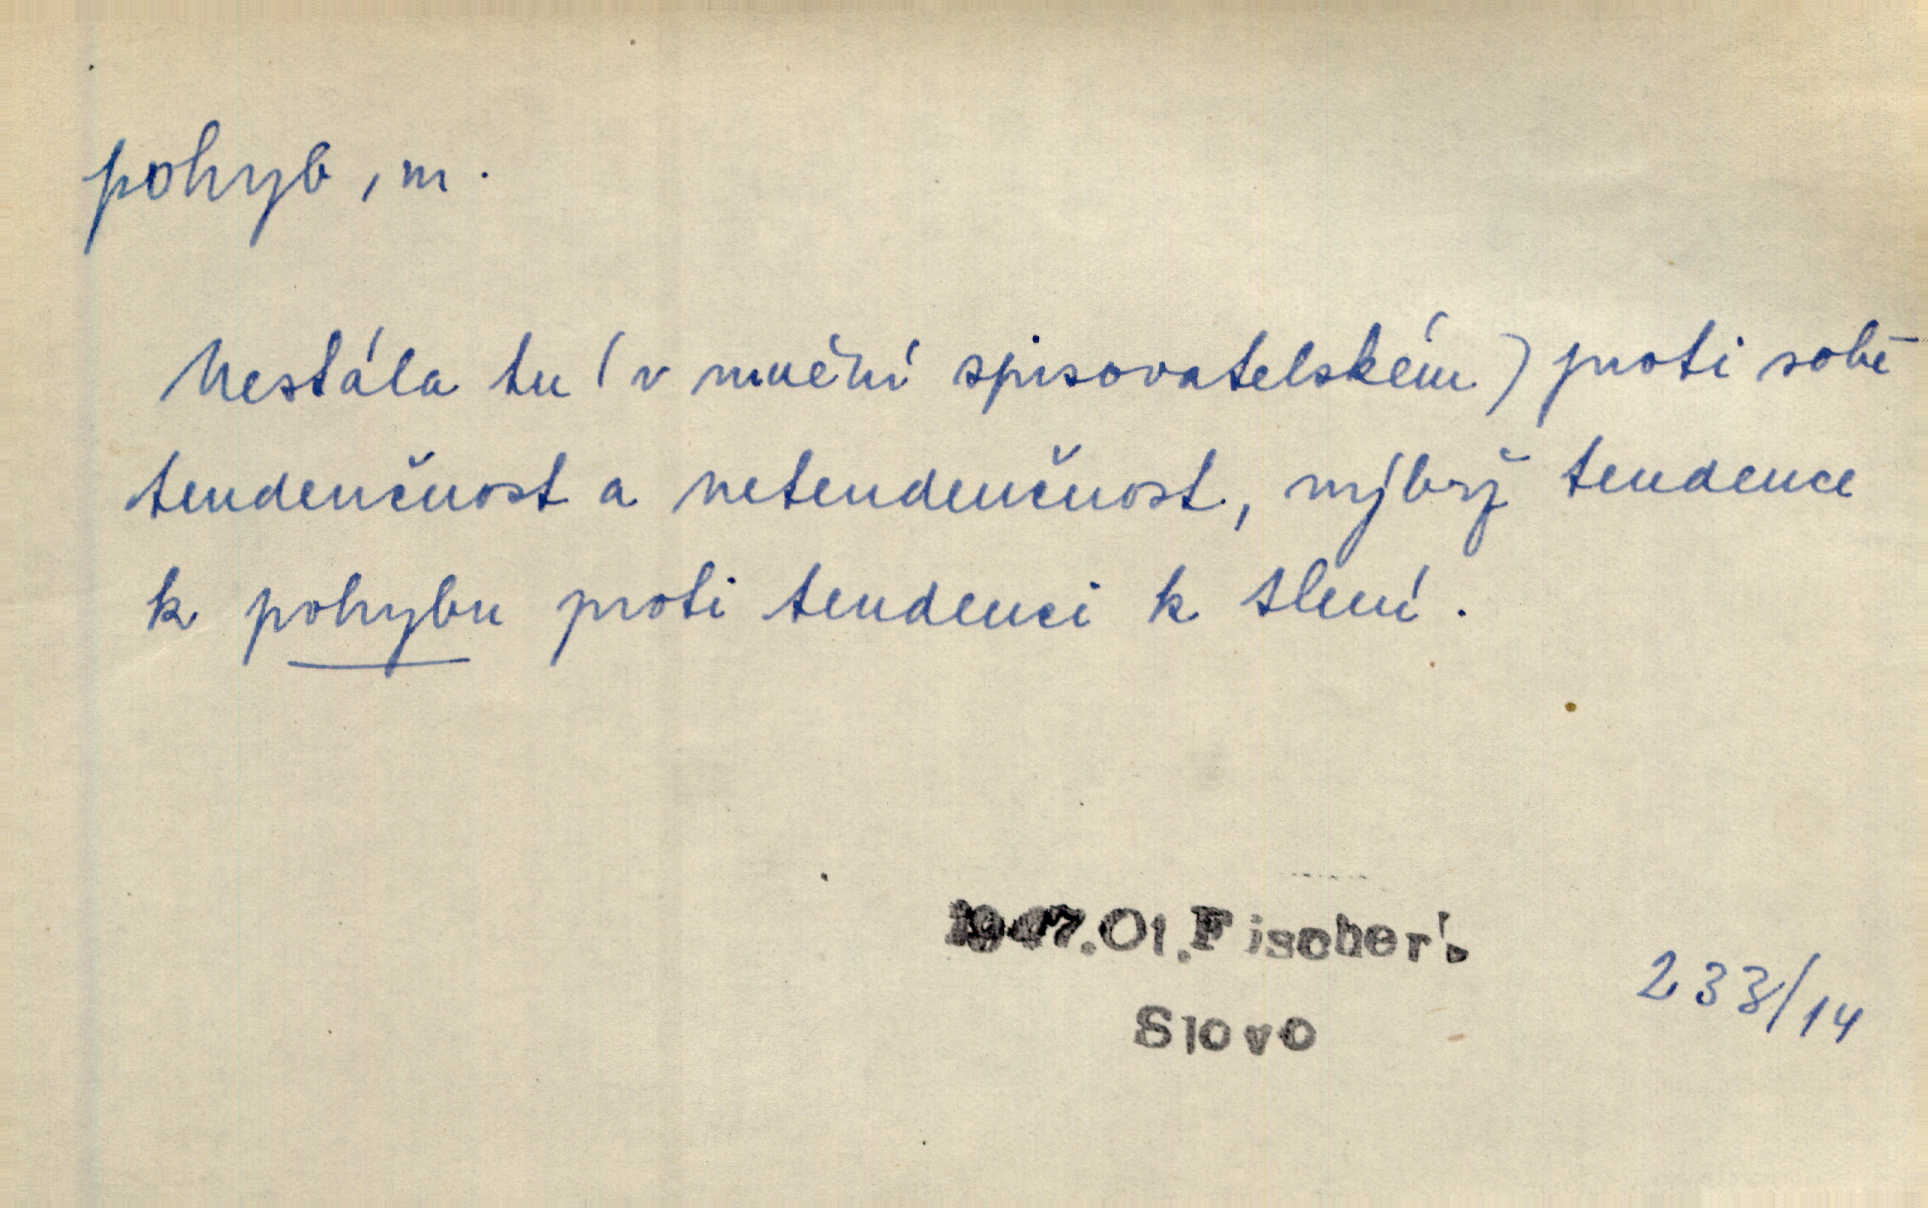 pohyb, m.
Nestála tu (v umění spisovatelském) proti sobě
tendenčnost a netendenčnost, nýbrž tendence
k pohybu proti tendenci k tlení.
1947.Ot.Fischer:
Slovo
233/14